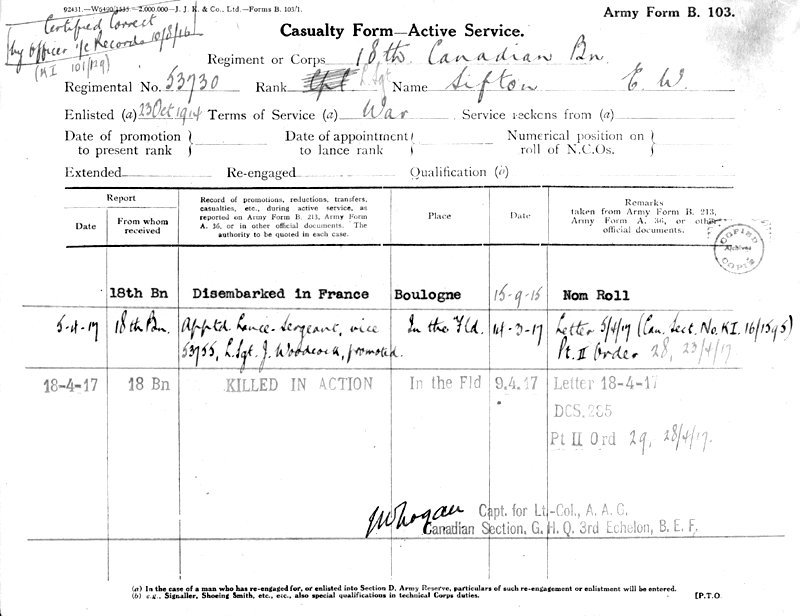 92431.—W6490/1535.—2,000,000—J. J. K. & Co., Ltd.—Forms B. 103/1.
Army Form B. 103.
Certified Correct
by Officer i/c Records 10/8/16
(KI 101/129)
Casualty Form—Active Service.
Regiment or Corps 18th Canadian Bn
Regimental No. 53730 Rank Cpl L Sgt Name Sifton E. W.
Enlisted (a) 23 Oct 1914 Terms of Service (a) War Service reckons from (a)
Date of promotion to present rank Date of appointment to lance rank Numerical position on roll of N.C.Os.
Extended Re-engaged Qualification (b)
Report
Date From whom received
Record of promotions, reductions, transfers, casualties, etc., during active service, as reported on Army Form B. 213, Army Form A. 36, or in other official documents. The authority to be quoted in each case.
Place
Date
Remarks
taken from Army Form B. 213, Army Form A. 36, or other official documents.
COPIED
Archives
COPIÉ
18th Bn Disembarked in France Boulogne 15-9-15 Nom Roll
5-4-17 18th Bn. Apptd Lance-Sergeant, vice In the Fld. 14-3-17 Letter 5/4/17 (Can. Sect. No. KI. 16/1595)
53755, L. Sgt. J. Woodcock, promoted. Pt. II Order 28, 23/4/17
18-4-17 18 Bn KILLED IN ACTION In the Fld 9.4.17 Letter 18-4-17
DCS. 285
Pt II Ord 29, 28/4/17.
Capt. for Lt.-Col., A. A. G.
Canadian Section, G. H. Q. 3rd Echelon, B. E. F.
(a) In the case of a man who has re-engaged for, or enlisted into Section D, Army Reserve, particulars of such re-engagement or enlistment will be entered.
(b) e.g., Signaller, Shoeing Smith, etc., etc., also special qualifications in technical Corps duties.
[P.T.O